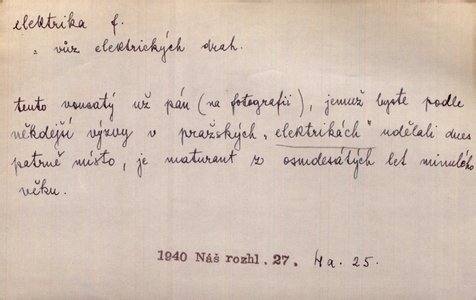 elektrika f.
= vůz elektrických drah.
tento vousatý už pán (na fotografii), jemuž byste podle
někdejší výzvy v pražských „elektrikách" udělali dnes
patrně místo, je maturant z osmdesátých let minulého
věku.
1940 Náš rozhl. 27. 4a. 25.